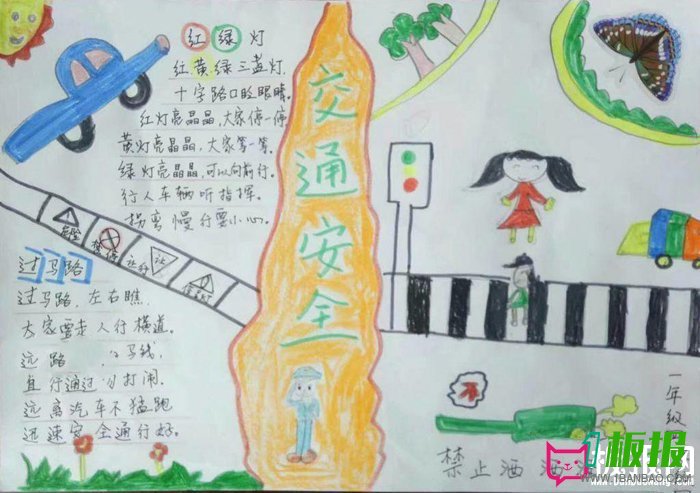 红绿灯
红黄绿三盏灯,
十字路口眨眼睛。
红灯亮晶晶,大家停一停
黄灯亮晶晶,大家等一等。
绿灯亮晶晶,可以向前行。
行人车辆听指挥。
拐弯慢行要小心。
交通安全
危险
禁停
让
过马路
过马路,左右瞧
大家要走人行横道。
远路 马线,
直行通过 打闹。
远离汽车不猛跑
迅速安全通行好。
不
一年级
禁止洒
1板报
WWW.1BANBAO.COM